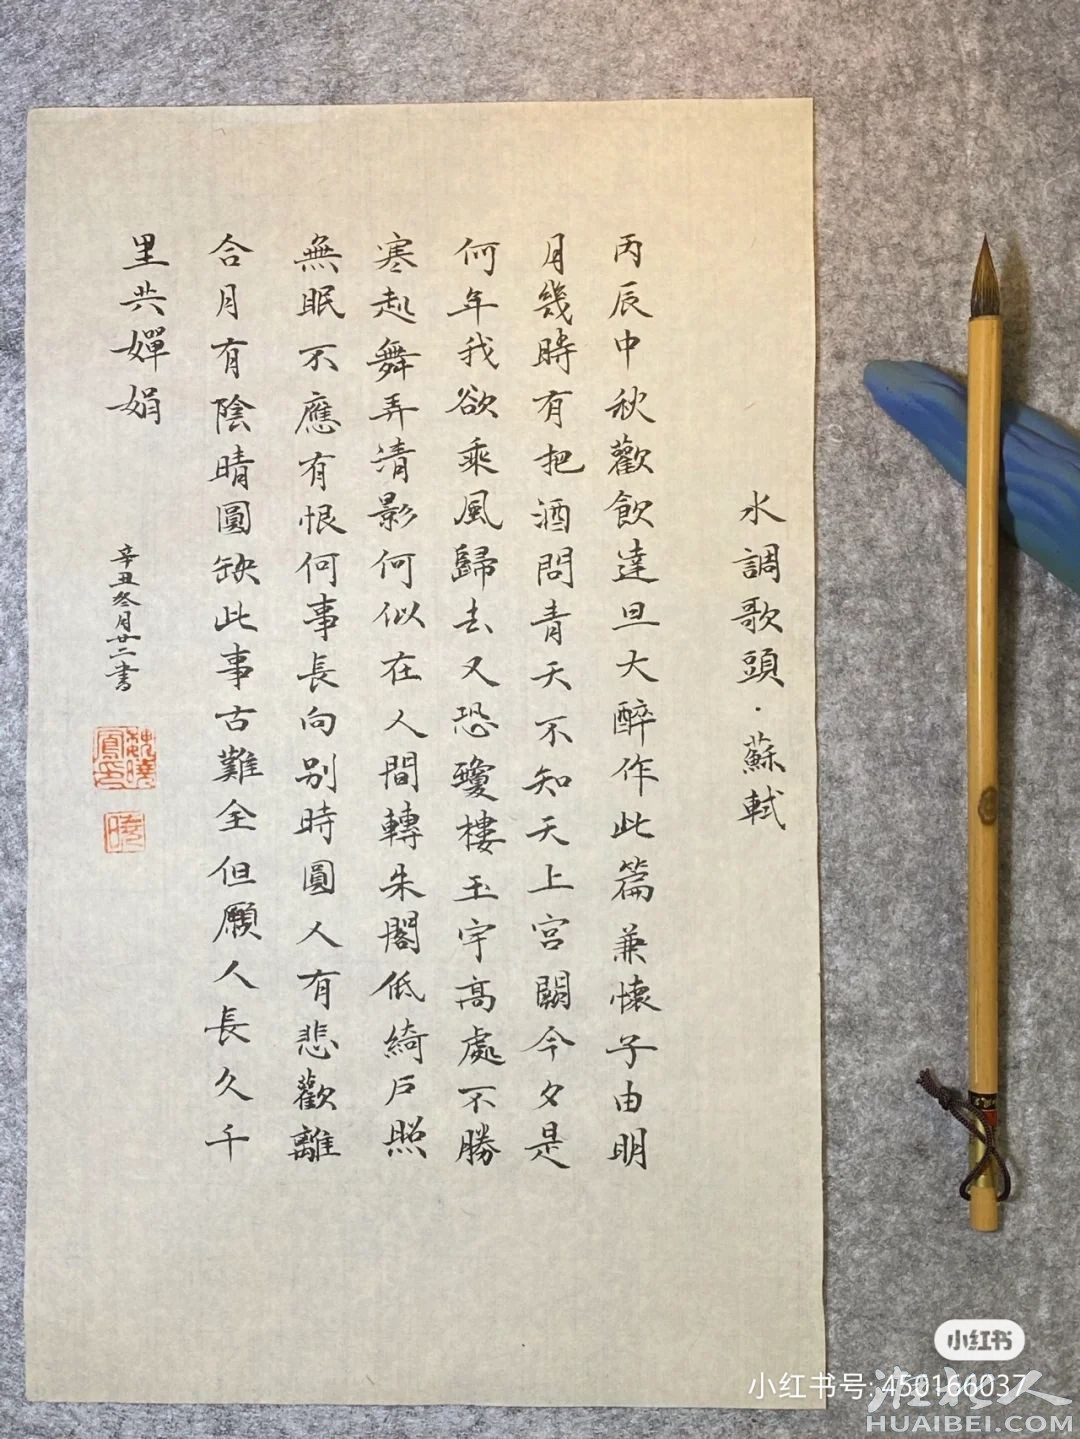 水調歌頭·蘇軾
丙辰中秋歡飲達旦大醉作此篇兼懷子由明
月幾時有把酒問青天不知天上宮闕今夕是
何年我欲乘風歸去又恐瓊樓玉宇高處不勝
寒起舞弄清影何似在人間轉朱閣低綺戶照
無眠不應有恨何事長向别時圓人有悲歡離
合月有陰晴圓缺此事古難全但願人長久千
里共嬋娟
辛丑冬月廿二書
小红书
小红书号: 450166037
淮北人
HUAIBEI.COM